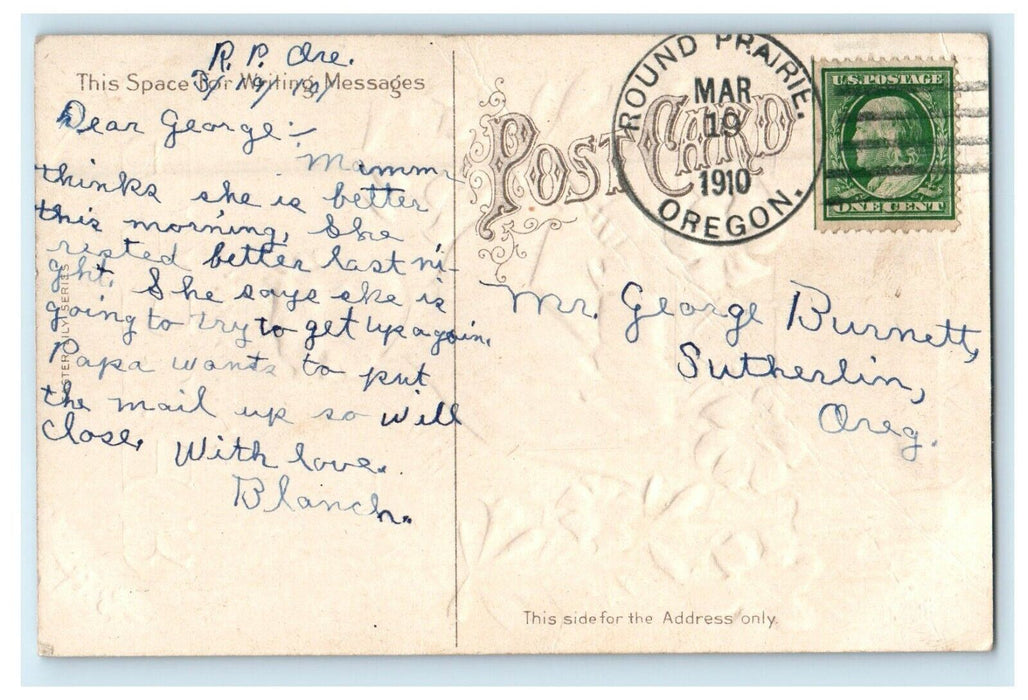 R. P. Ore.
This Space For Writing Messages
Dear George:-
Mamma
thinks she is better
this morning. She
rested better last ni-
ght. She says she is
going to try to get up again.
Papa wants to put
the mail up so will
close.
With love.
Blanch.
EASTER LILY SERIES
POST CARD
ROUND PRAIRIE.
MAR
19
1910
OREGON.
U.S. POSTAGE
ONE CENT
Mr. George Burnett,
Sutherlin,
Oreg.
This side for the Address only.